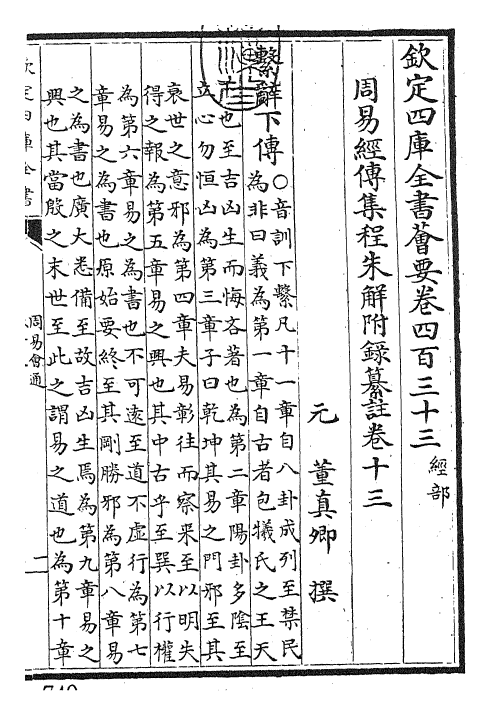 欽定四庫全書薈要卷四百三十三 經部
周易經傳集程朱解附錄纂註卷十三
元 董真卿 撰
繫辭下傳 ○音訓下繫凡十一章自八卦成列至禁民
為非曰義為第一章自古者包犧氏之王天
也至吉凶生而悔吝著也為第二章陽卦多陰至
立心勿恒凶為第三章子曰乾坤其易之門邪至其
衰世之意邪為第四章夫易彰往而察來至以明失
得之報為第五章易之興也其中古乎至巽以行權
為第六章易之為書也不可遠至道不虛行為第七
章易之為書也原始要終至其剛勝邪為第八章易
之為書也廣大悉備至故吉凶生焉為第九章易之
興也其當殷之末世至此之謂易之道也為第十章
欽定四庫全書
周易會通
二